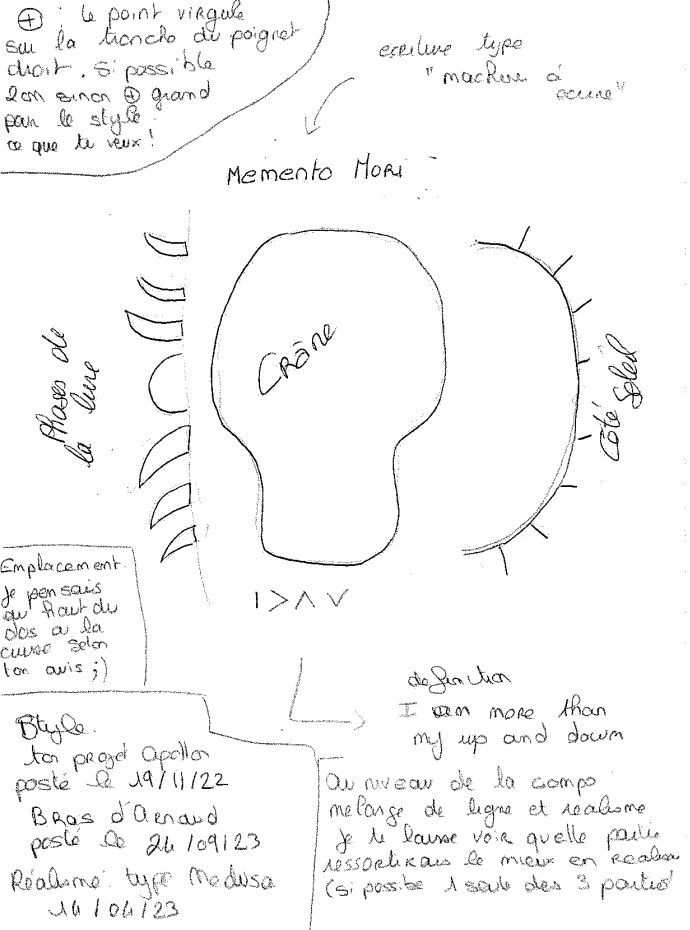 ⊕ : le point virgule
sur la tranche du poignet
droit. Si possible
2cm sinon ⊕ grand
pour le style
ce que tu veux !
ecriture type
"machine à
ecrire"
Memento Mori
Phases de
la lune
Crâne
Côté Soleil
Emplacement
Je pensais
au haut du
dos ou la
cuisse selon
ton avis ;)
I > Λ V
definition
I am more than
my up and down
Style
ton projet Apollon
posté le 19/11/22
Bras d'Arnaud
posté le 24/09/23
Réalisme type Medusa
14/04/23
Au niveau de la compo
melange de ligne et realisme
Je te laisse voir quelle partie
ressortirais le mieux en
(si possible 1 seule des 3 parties